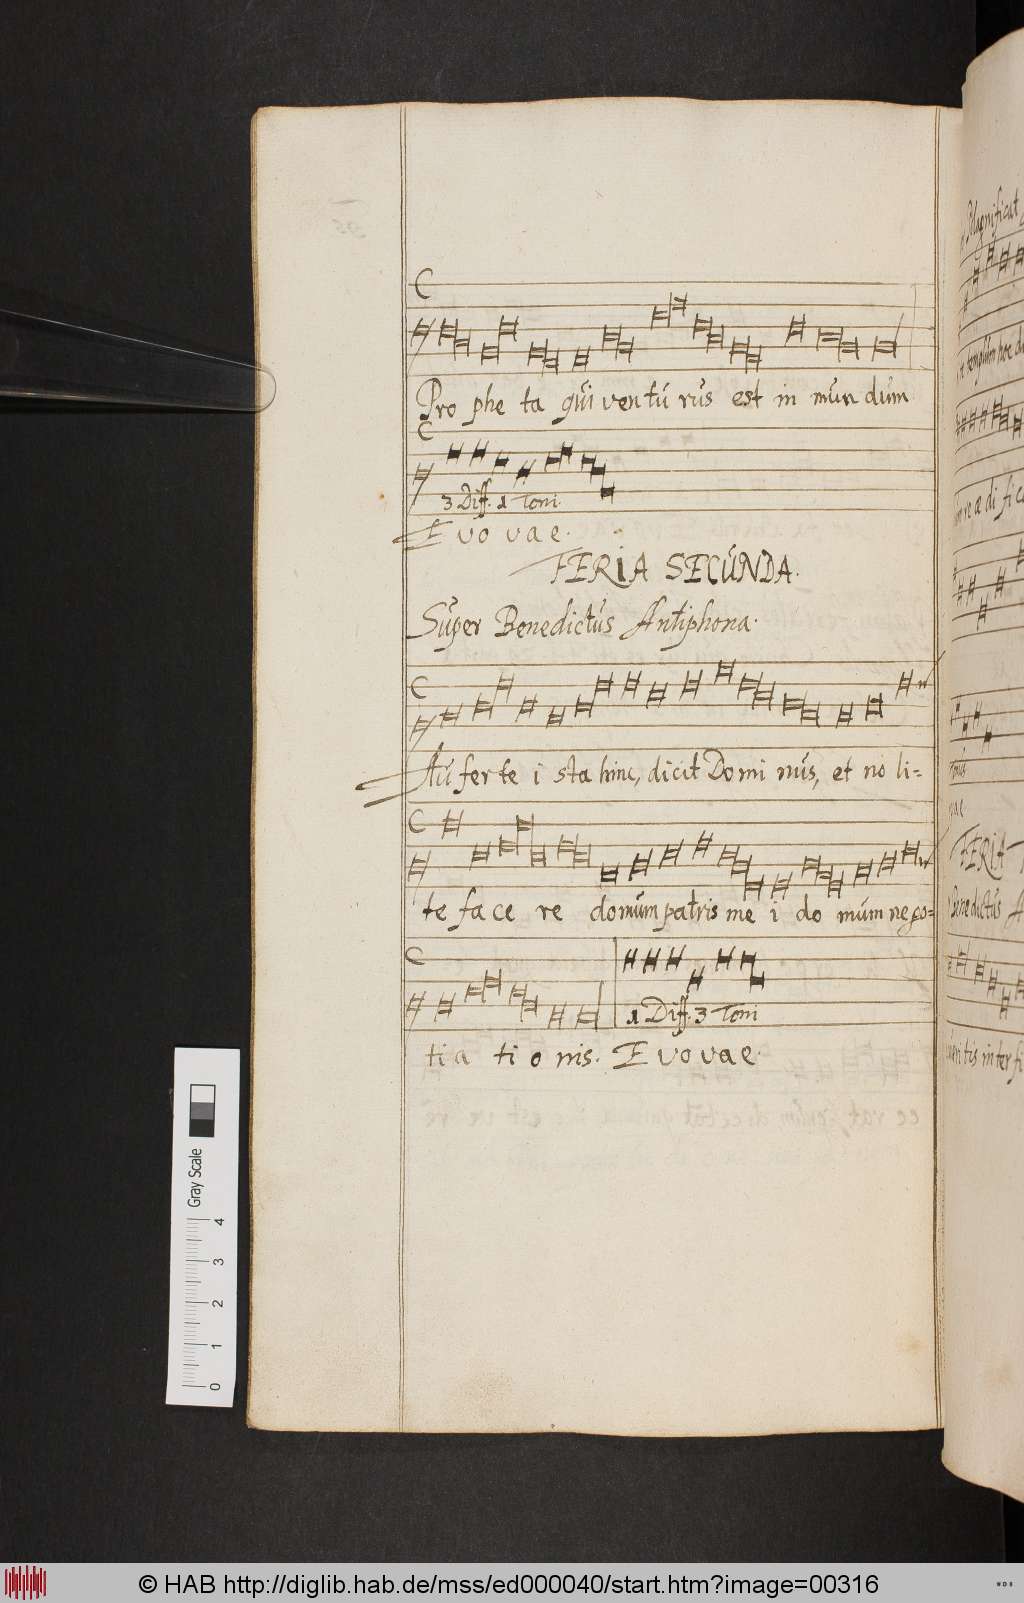 Pro phe ta qui ven tu rus est in mun dum
3 Diff. 1 Toni.
E vo vae.
FERIA SECUNDA.
Super Benedictus Antiphona.
Au fer te i sta hinc, dicit Do mi nus, et no li=
te fa ce re domum patris me i do mum nego=
1 Diff. 3 Toni
tia ti o nis. E vo vae.
Magnificat
FERIA
Gray Scale
0 1 2 3 4
© HAB http://diglib.hab.de/mss/ed000040/start.htm?image=00316